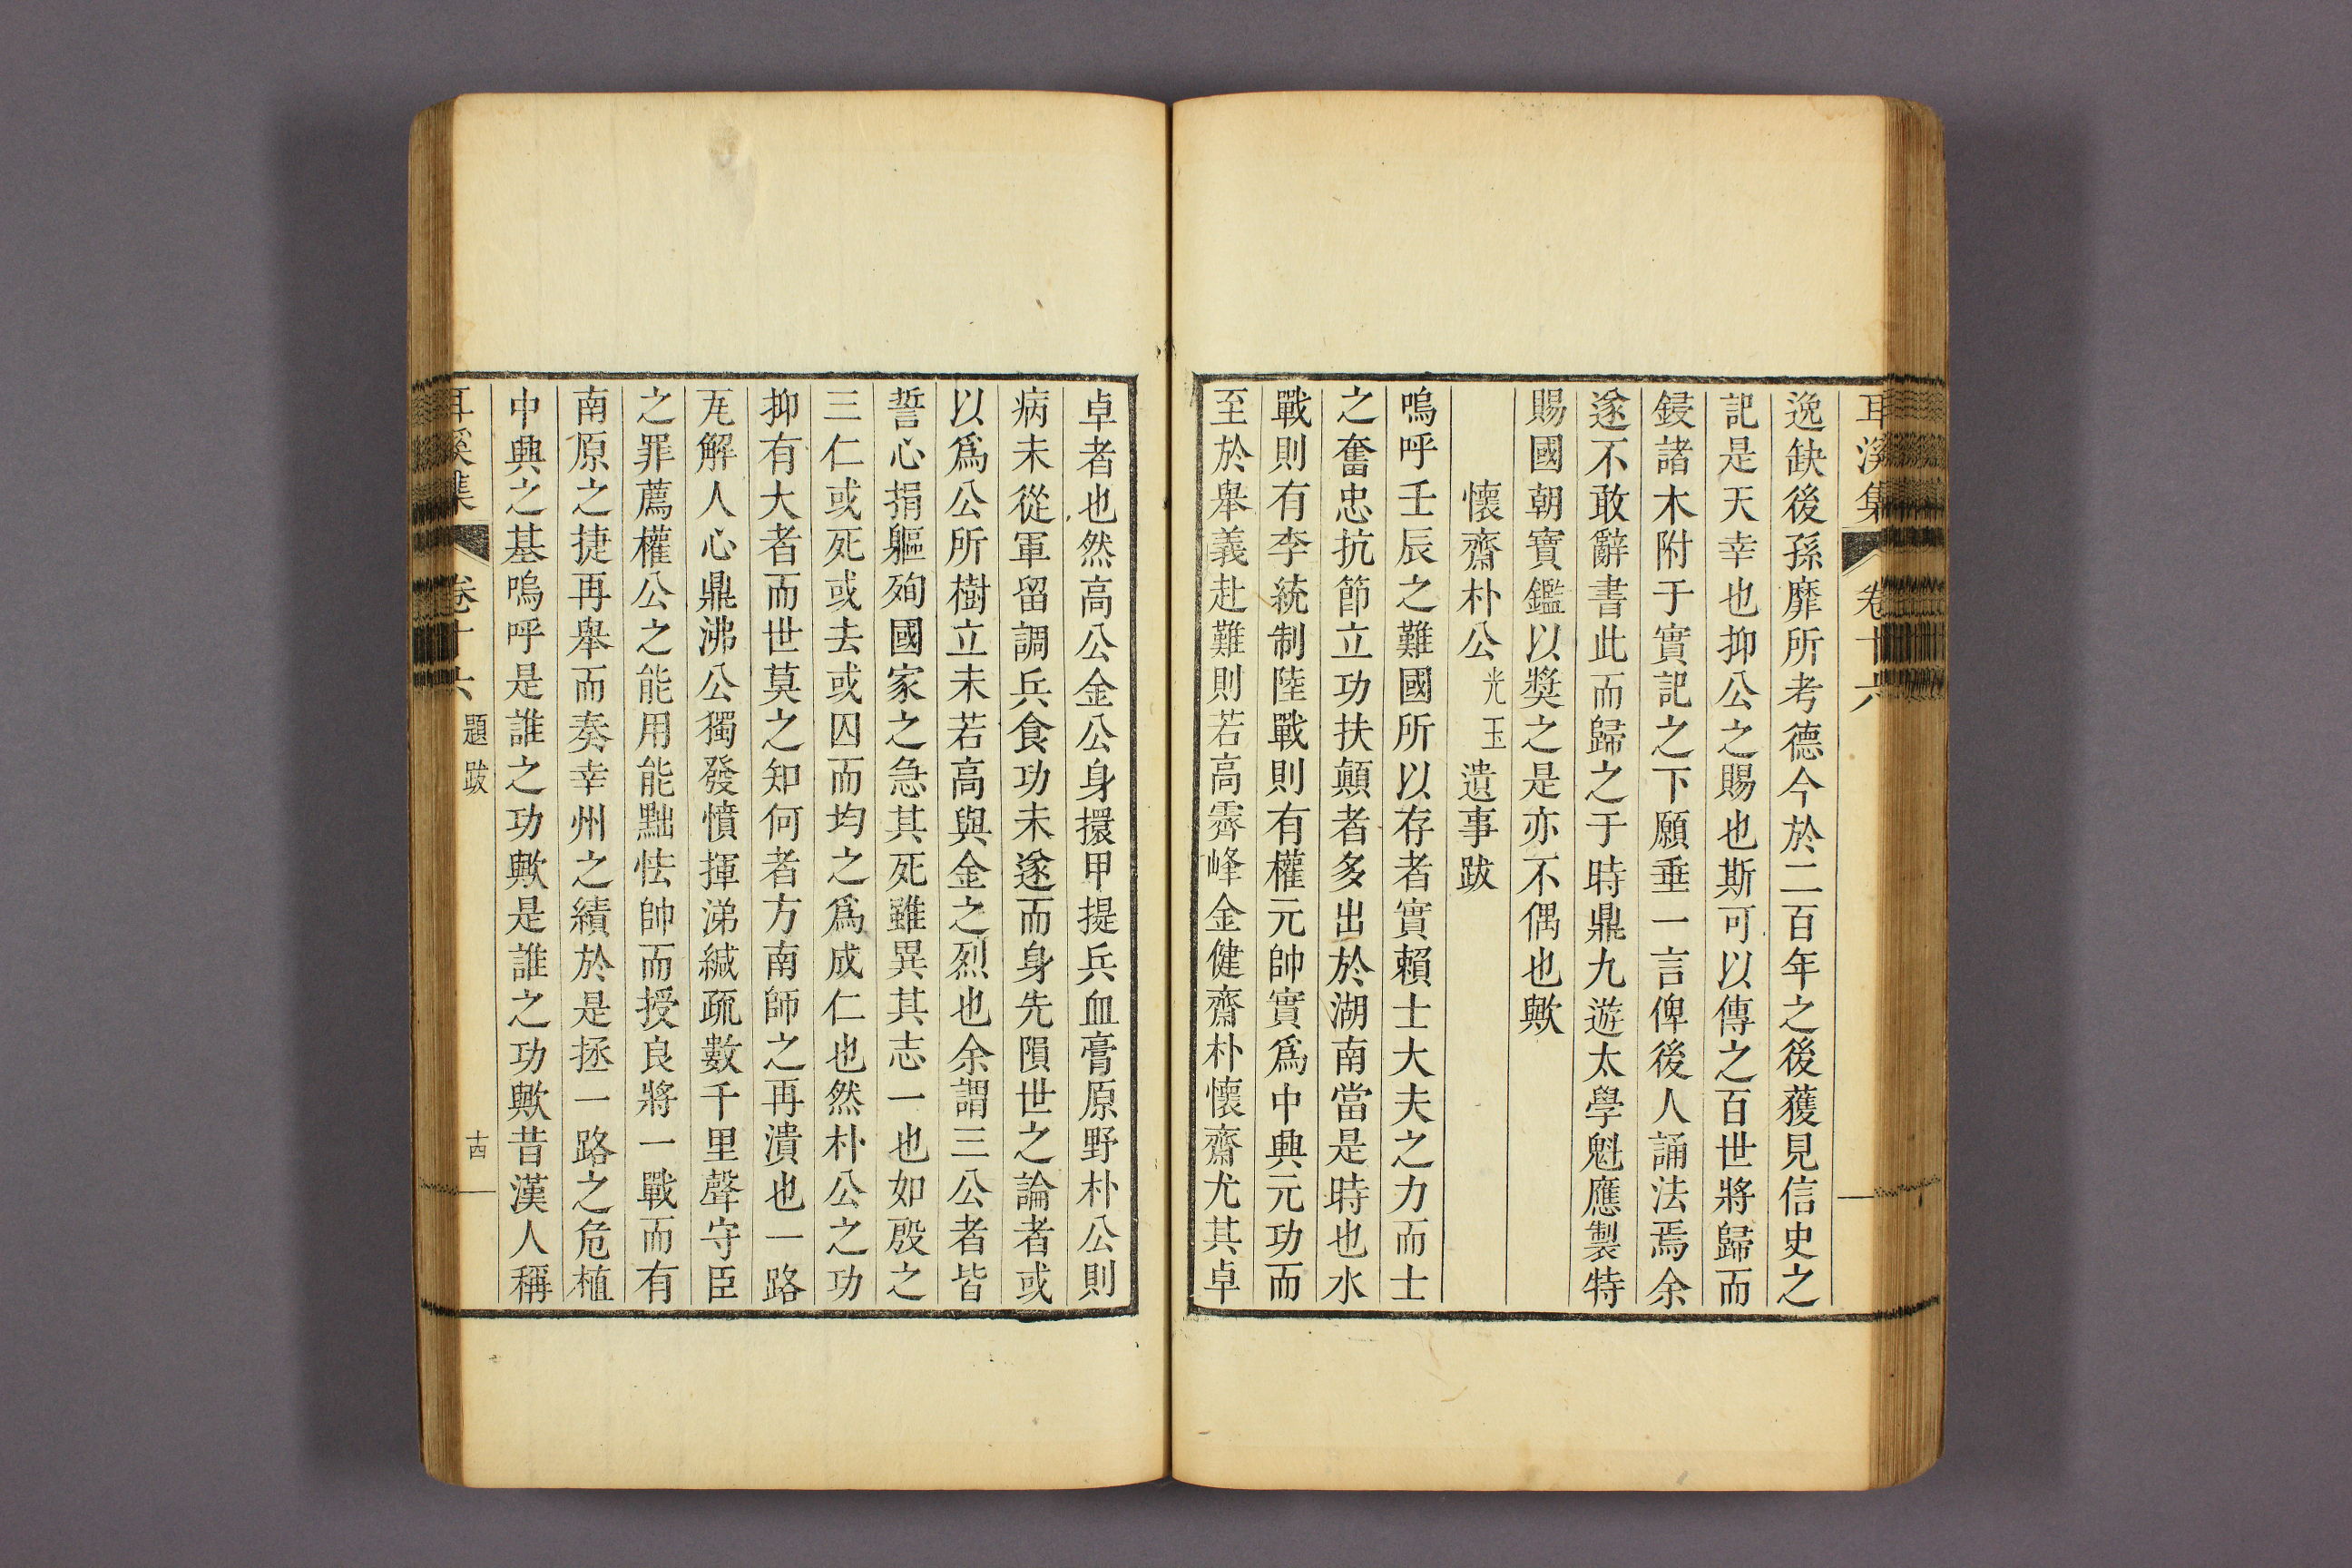 耳溪集 卷十六
逸缺後孫靡所考德今於二百年之後獲見信史之
記是天幸也抑公之賜也斯可以傳之百世將歸而
鋟諸木附于實記之下願垂一言俾後人誦法焉余
遂不敢辭書此而歸之于時鼎九遊太學魁應製特
賜國朝寶鑑以獎之是亦不偶也歟
懷齋朴公光玉遺事跋
嗚呼壬辰之難國所以存者實賴士大夫之力而士
之奮忠抗節立功扶顛者多出於湖南當是時也水
戰則有李統制陸戰則有權元帥實爲中興元功而
至於舉義赴難則若高霽峰金健齋朴懷齋尤其卓
卓者也然高公金公身擐甲提兵血膏原野朴公則
病未從軍留調兵食功未遂而身先隕世之論者或
以爲公所樹立未若高與金之烈也余謂三公者皆
誓心捐軀殉國家之急其死雖異其志一也如殷之
三仁或死或去或囚而均之爲成仁也然朴公之功
抑有大者而世莫之知何者方南師之再潰也一路
瓦解人心鼎沸公獨發憤揮涕緘疏數千里聲守臣
之罪薦權公之能用能黜怯帥而授良將一戰而有
南原之捷再舉而奏幸州之績於是拯一路之危植
中興之基嗚呼是誰之功歟是誰之功歟昔漢人稱
耳溪集 卷十六 題跋 十四